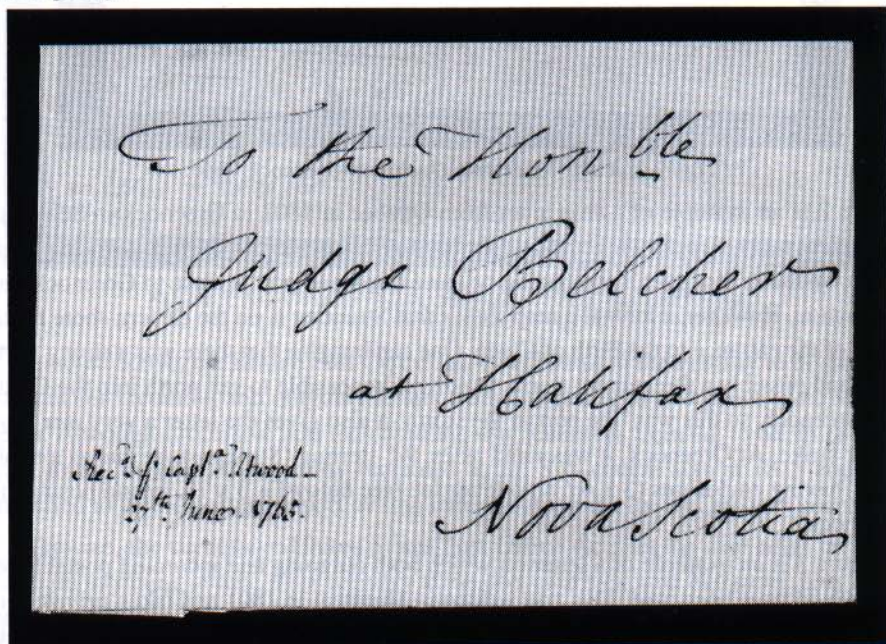 To the Hon^ble
Judge Belcher
at Halifax
Nova Scotia
Rec^d. Capt^n. Atwood
27^th June. 1765.